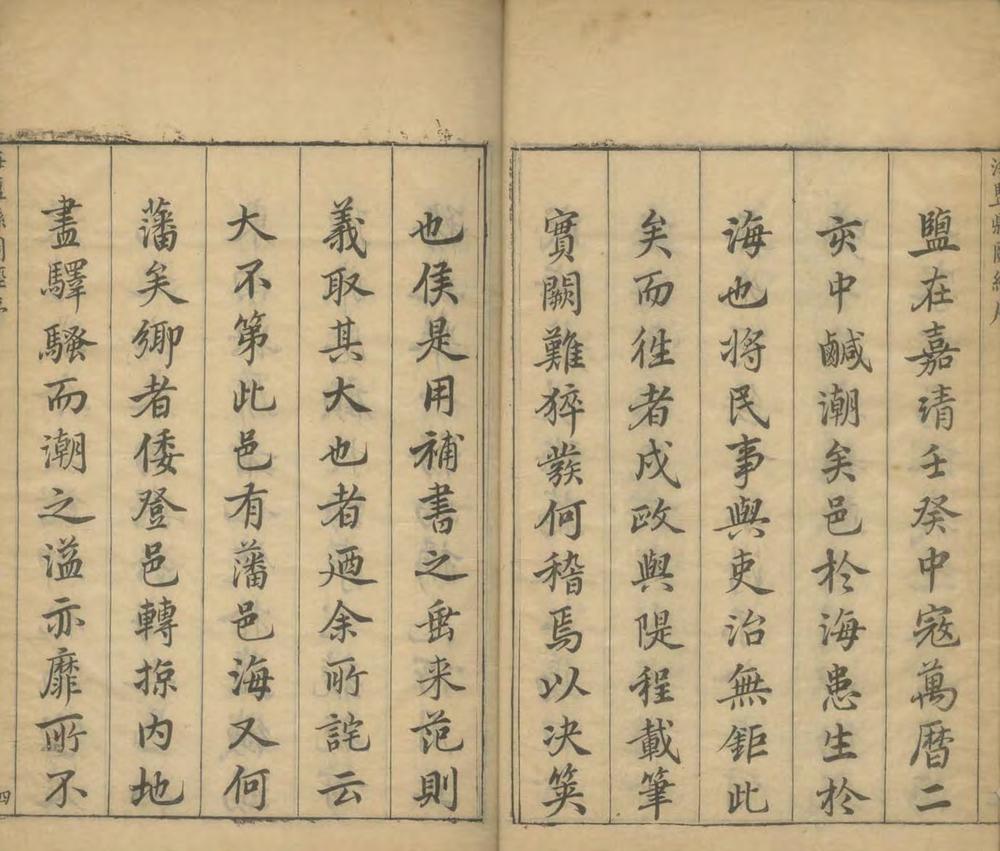 鹽在嘉靖壬癸中寇萬曆二
亥中鹹潮矣邑於海患生於
海也將民事與吏治無鉅此
矣而徃者戍政與隄程載筆
實闕難猝䉺何稽焉以决筴
也侯是用補書之垂来范則
義取其大也者廼余所詫云
大不第此邑有藩邑海又何
藩矣鄉者倭登邑轉掠内地
盡驛騷而潮之溢亦靡所不
四